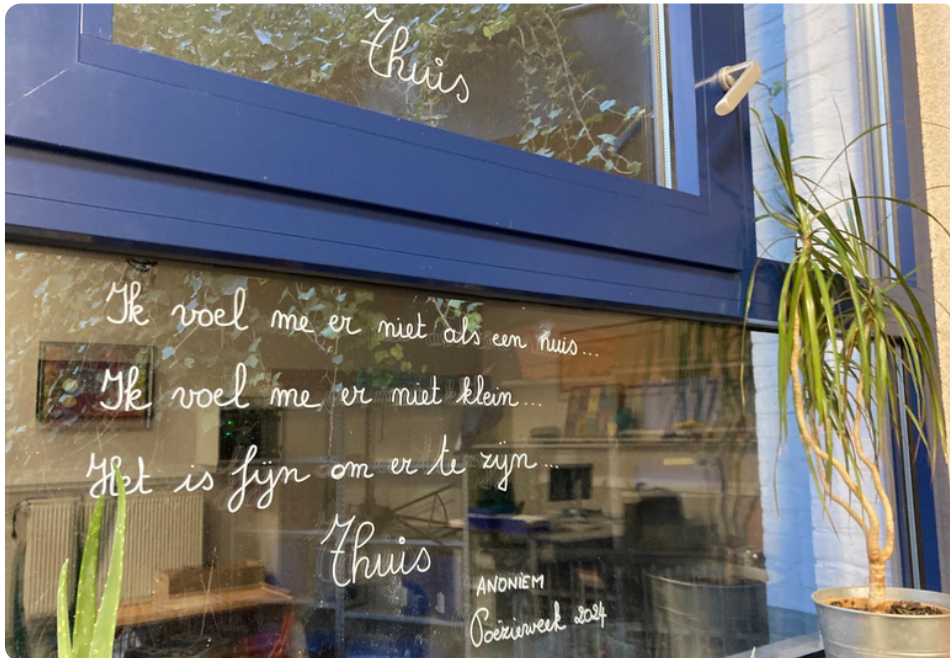 Thuis
Ik voel me er niet als een huis...
Ik voel me er niet klein...
Het is fijn om er te zijn...
Thuis
ANONIEM
Poëzieweek 2024